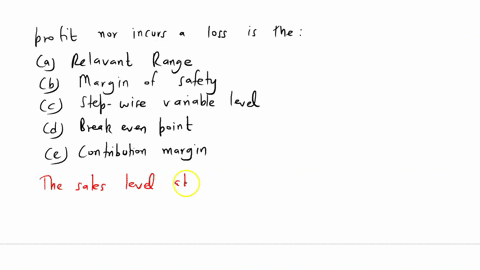 profit nor incurs a loss is the:
(a) Relavant Range
(b) Margin of safety
(c) Step-wise variable level
(d) Break even point
(e) Contribution margin
The sales level at